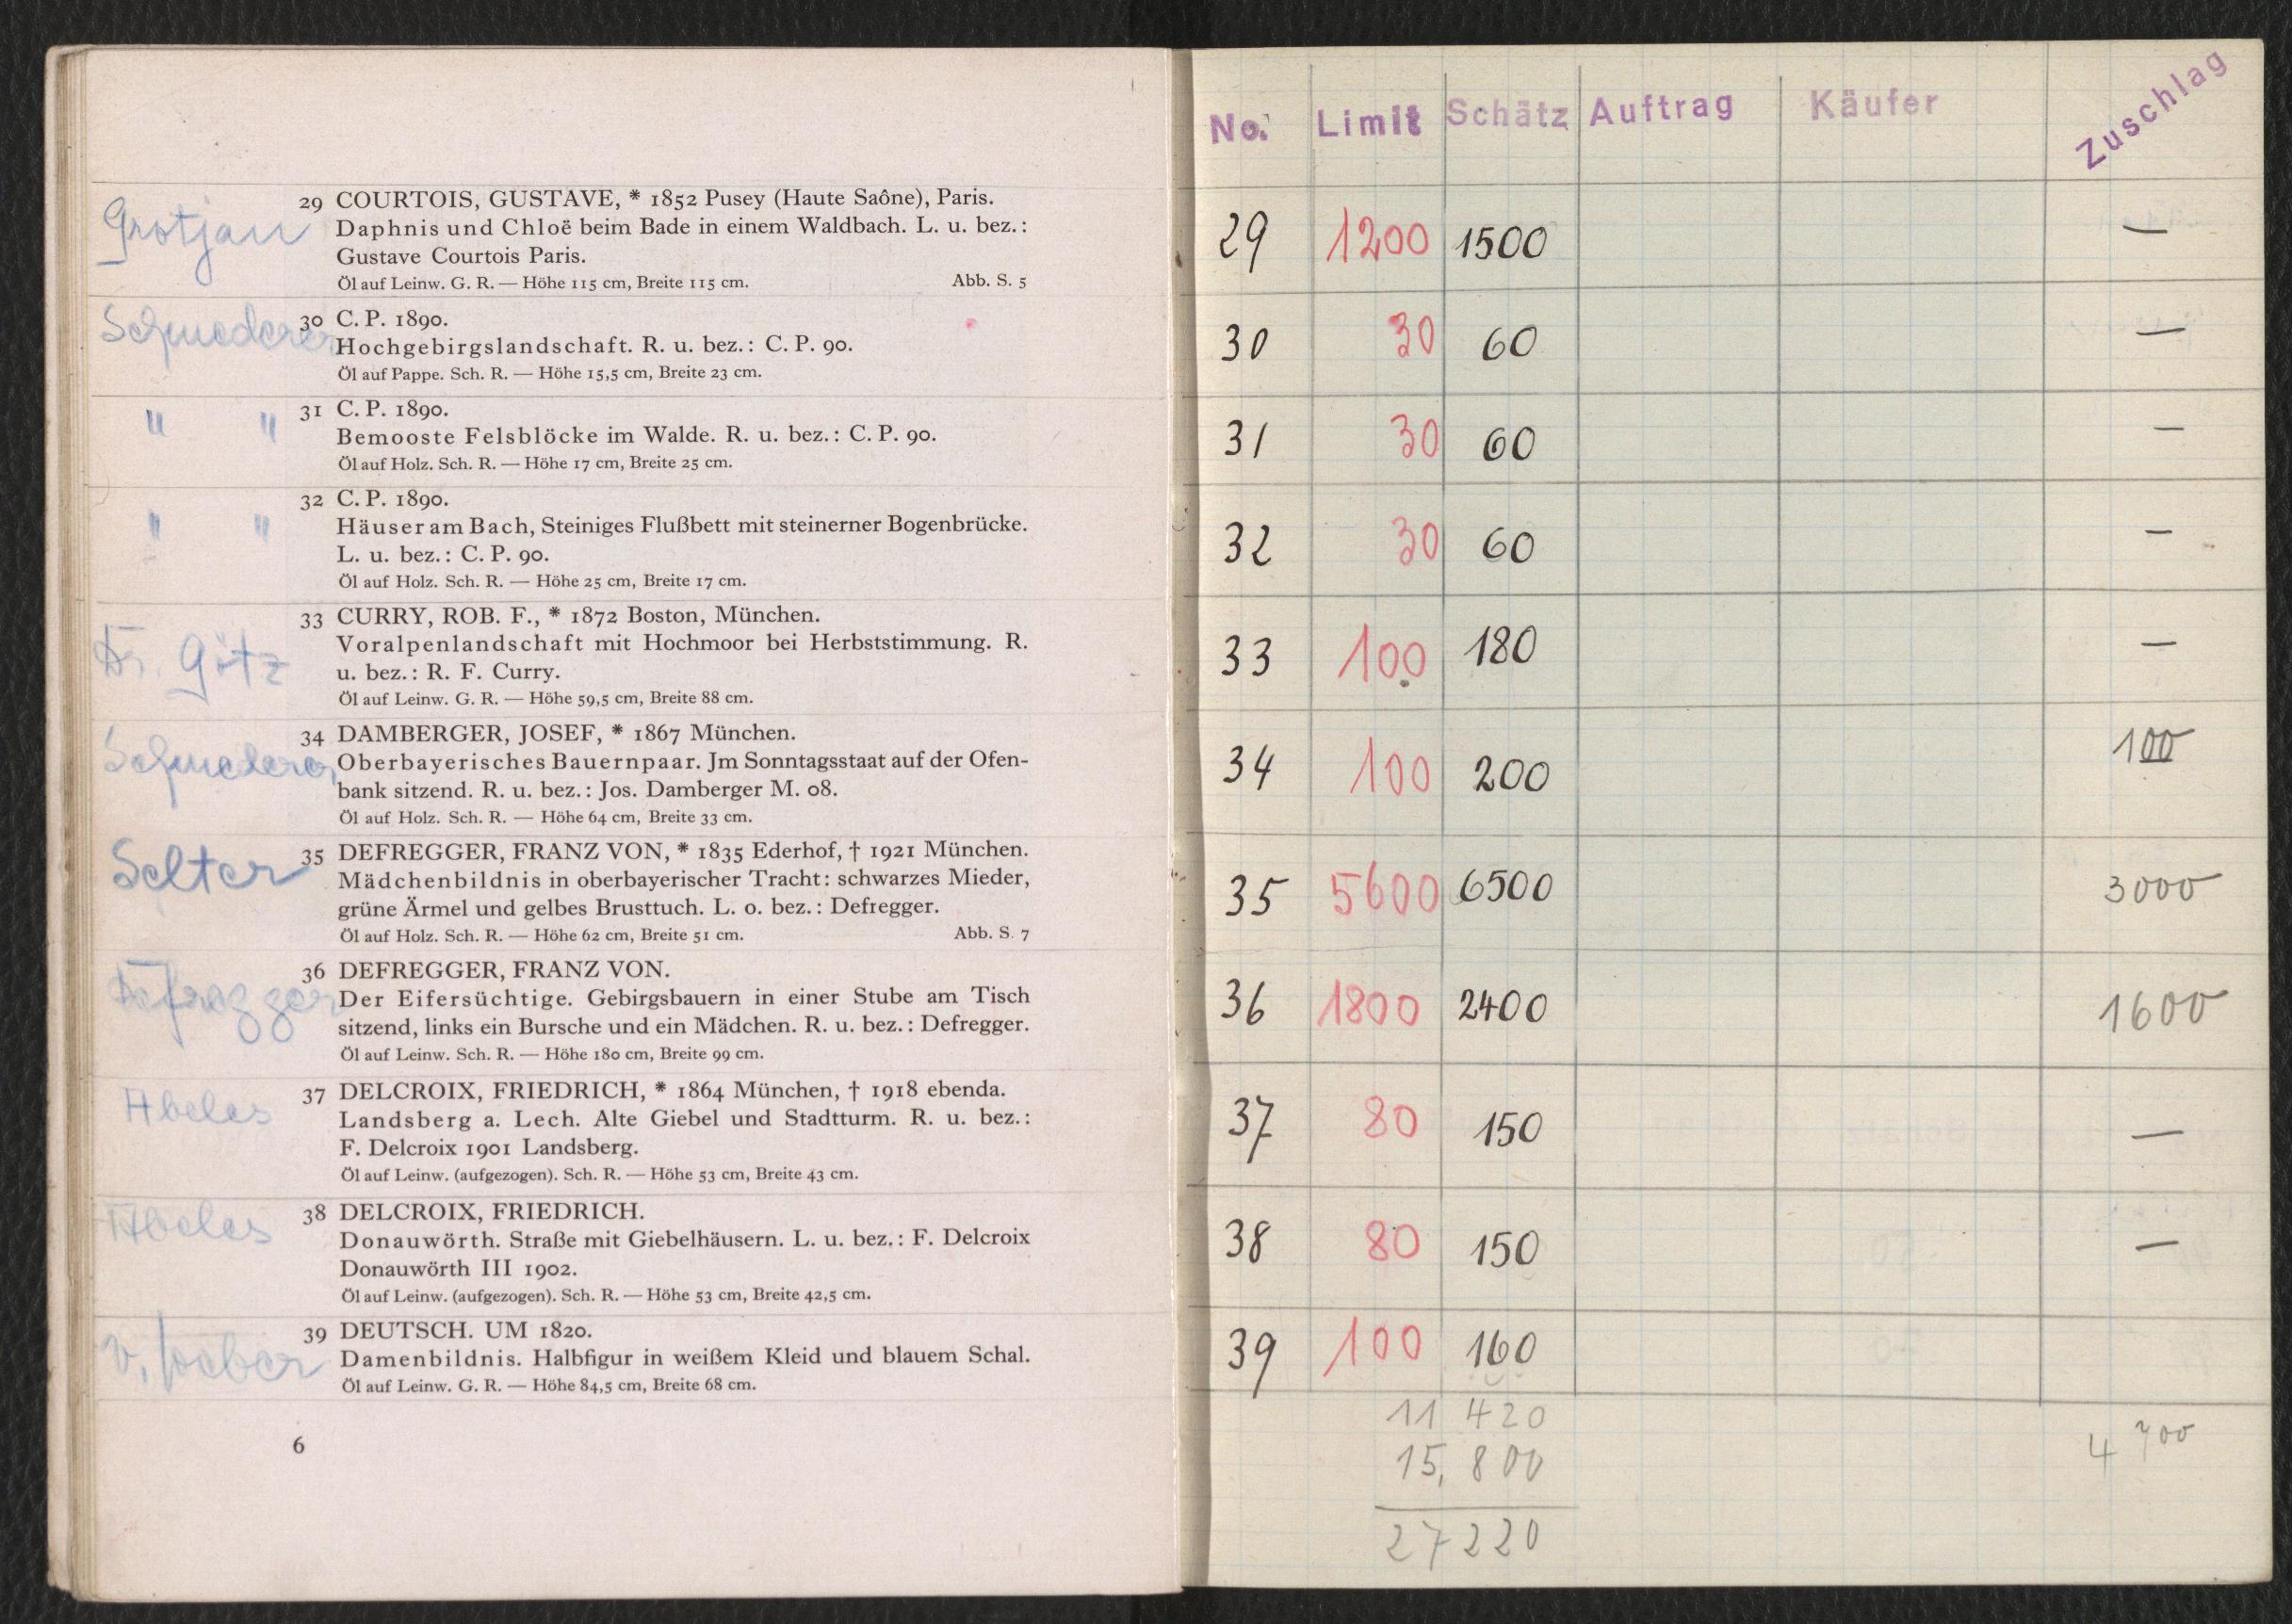 Grotjan
29 COURTOIS, GUSTAVE, * 1852 Pusey (Haute Saône), Paris.
Daphnis und Chloë beim Bade in einem Waldbach. L. u. bez.:
Gustave Courtois Paris.
Öl auf Leinw. G. R. — Höhe 115 cm, Breite 115 cm. Abb. S. 5
Schmederer
30 C. P. 1890.
Hochgebirgslandschaft. R. u. bez.: C. P. 90.
Öl auf Pappe. Sch. R. — Höhe 15,5 cm, Breite 23 cm.
" "
31 C. P. 1890.
Bemooste Felsblöcke im Walde. R. u. bez.: C. P. 90.
Öl auf Holz. Sch. R. — Höhe 17 cm, Breite 25 cm.
" "
32 C. P. 1890.
Häuser am Bach, Steiniges Flußbett mit steinerner Bogenbrücke.
L. u. bez.: C. P. 90.
Öl auf Holz. Sch. R. — Höhe 25 cm, Breite 17 cm.
Dr. Götz
33 CURRY, ROB. F., * 1872 Boston, München.
Voralpenlandschaft mit Hochmoor bei Herbststimmung. R.
u. bez.: R. F. Curry.
Öl auf Leinw. G. R. — Höhe 59,5 cm, Breite 88 cm.
Schmederer
34 DAMBERGER, JOSEF, * 1867 München.
Oberbayerisches Bauernpaar. Jm Sonntagsstaat auf der Ofen-
bank sitzend. R. u. bez.: Jos. Damberger M. 08.
Öl auf Holz. Sch. R. — Höhe 64 cm, Breite 33 cm.
Selter
35 DEFREGGER, FRANZ VON, * 1835 Ederhof, † 1921 München.
Mädchenbildnis in oberbayerischer Tracht: schwarzes Mieder,
grüne Ärmel und gelbes Brusttuch. L. o. bez.: Defregger.
Öl auf Holz. Sch. R. — Höhe 62 cm, Breite 51 cm. Abb. S. 7
Defregger
36 DEFREGGER, FRANZ VON.
Der Eifersüchtige. Gebirgsbauern in einer Stube am Tisch
sitzend, links ein Bursche und ein Mädchen. R. u. bez.: Defregger.
Öl auf Leinw. Sch. R. — Höhe 180 cm, Breite 99 cm.
Abeles
37 DELCROIX, FRIEDRICH, * 1864 München, † 1918 ebenda.
Landsberg a. Lech. Alte Giebel und Stadtturm. R. u. bez.:
F. Delcroix 1901 Landsberg.
Öl auf Leinw. (aufgezogen). Sch. R. — Höhe 53 cm, Breite 43 cm.
Abeles
38 DELCROIX, FRIEDRICH.
Donauwörth. Straße mit Giebelhäusern. L. u. bez.: F. Delcroix
Donauwörth III 1902.
Öl auf Leinw. (aufgezogen). Sch. R. — Höhe 53 cm, Breite 42,5 cm.
v.
39 DEUTSCH. UM 1820.
Damenbildnis. Halbfigur in weißem Kleid und blauem Schal.
Öl auf Leinw. G. R. — Höhe 84,5 cm, Breite 68 cm.
6
No. Limit Schätz Auftrag Käufer Zuschlag
29 1200 1500 —
30 30 60 —
31 30 60 —
32 30 60 —
33 100 180 —
34 100 200 100
35 5600 6500 3000
36 1800 2400 1600
37 80 150 —
38 80 150 —
39 100 160
11 420
15,800
27220
4 700